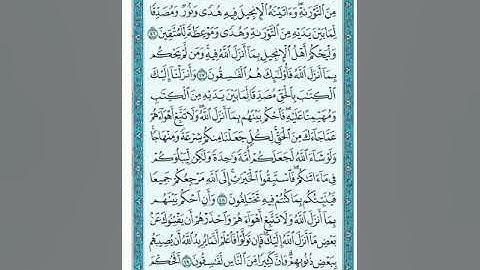 مِنَ ٱلتَّوْرَىٰةِۖ وَءَاتَيْنَٰهُ ٱلْإِنجِيلَ فِيهِ هُدًى وَنُورٌ وَمُصَدِّقًا
لِّمَا بَيْنَ يَدَيْهِ مِنَ ٱلتَّوْرَىٰةِ وَهُدًى وَمَوْعِظَةً لِّلْمُتَّقِينَ ٤٦
وَلْيَحْكُمْ أَهْلُ ٱلْإِنجِيلِ بِمَآ أَنزَلَ ٱللَّهُ فِيهِۚ وَمَن لَّمْ يَحْكُم
بِمَآ أَنزَلَ ٱللَّهُ فَأُو۟لَٰٓئِكَ هُمُ ٱلْفَٰسِقُونَ ٤٧ وَأَنزَلْنَآ إِلَيْكَ
ٱلْكِتَٰبَ بِٱلْحَقِّ مُصَدِّقًا لِّمَا بَيْنَ يَدَيْهِ مِنَ ٱلْكِتَٰبِ
وَمُهَيْمِنًا عَلَيْهِۖ فَٱحْكُم بَيْنَهُم بِمَآ أَنزَلَ ٱللَّهُۖ وَلَا تَتَّبِعْ أَهْوَآءَهُمْ
عَمَّا جَآءَكَ مِنَ ٱلْحَقِّۚ لِكُلٍّ جَعَلْنَا مِنكُمْ شِرْعَةً وَمِنْهَاجًاۚ
وَلَوْ شَآءَ ٱللَّهُ لَجَعَلَكُمْ أُمَّةً وَٰحِدَةً وَلَٰكِن لِّيَبْلُوَكُمْ
فِى مَآ ءَاتَىٰكُمْۖ فَٱسْتَبِقُوا۟ ٱلْخَيْرَٰتِۚ إِلَى ٱللَّهِ مَرْجِعُكُمْ جَمِيعًا
فَيُنَبِّئُكُم بِمَا كُنتُمْ فِيهِ تَخْتَلِفُونَ ٤٨ وَأَنِ ٱحْكُم بَيْنَهُم
بِمَآ أَنزَلَ ٱللَّهُ وَلَا تَتَّبِعْ أَهْوَآءَهُمْ وَٱحْذَرْهُمْ أَن يَفْتِنُوكَ عَنۢ
بَعْضِ مَآ أَنزَلَ ٱللَّهُ إِلَيْكَۖ فَإِن تَوَلَّوْا۟ فَٱعْلَمْ أَنَّمَا يُرِيدُ ٱللَّهُ أَن يُصِيبَهُم
بِبَعْضِ ذُنُوبِهِمْۗ وَإِنَّ كَثِيرًا مِّنَ ٱلنَّاسِ لَفَٰسِقُونَ ٤٩ أَفَحُكْمَ